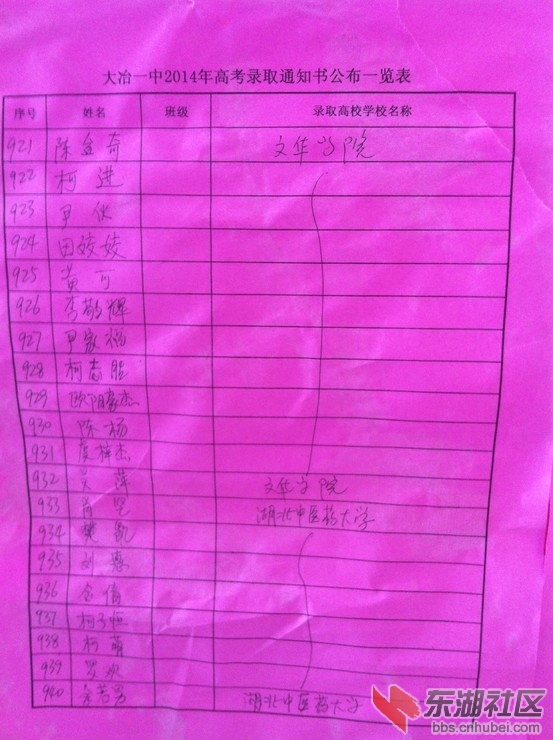 大冶一中2014年高考录取通知书公布一览表
序号 姓名 班级 录取高校学校名称
921 陈金奇 文华学院
922 柯进
923 尹伙
924 田姣姣
925 黄可
926 李敬辉
927 尹家福
928 柯志胜
929 欧阳豪杰
930 陈杨
931 梓杰
932 吴萍 文华学院
933 肖坚 湖北中医药大学
934 樊凯
935 刘惠
936 倩
937 柯子恒
938 柯萌
939 罗欢
940 余芳男 湖北中医药大学
东湖社区
bbs.cnhubei.com